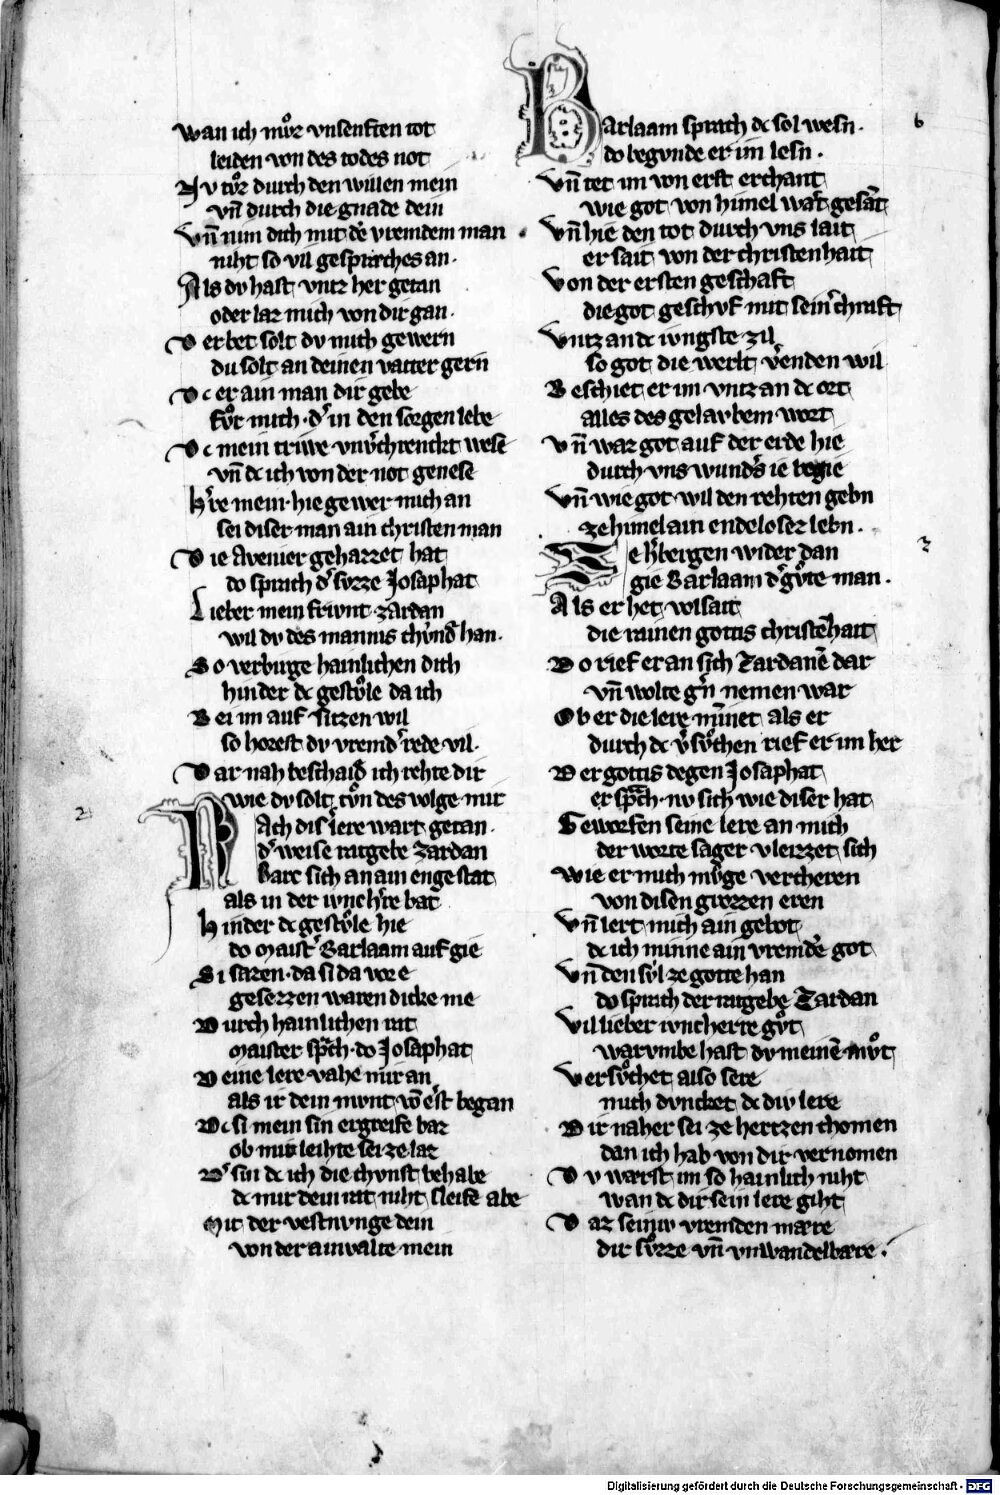 wan ich mvͦz vnsenften tot
leiden von des todes not
Nv tvͦz durch den willen mein
vn̄ durch die gnade dein
Vn̄ nim dich mit dē vremdem man
niht so vil gespræches an·
Als dv hast vntz her getan
oder laz mich von dir gan·
Ver bet solt dv mich gewern
du solt an deinen vatter gern
Dc er ain man dir gebe
fvͦr mich·dˢ in den sorgen lebe
Dc mein triwe vnvˢchrenckt wese
vn̄ dc ich von der not genese
hˢre mein·hie gewer mich an
sei diser man ain christen man
Die Avenier geharzet hat
do sprach dˢ svͤzze Josaphat
Lieber mein frivnt zardan
wil dv des mannis chvͥndˢ han·
So verbirge hainlichen dich
hinder dc gestvͤle da ich
Bei im auf sitzen wil
so horest dv vremdˢ rede vil·
Dar nah beschaidˢ ich rehte dir
wie dv solt tvͦn des volge mir
Nach disˢ lere wart getan·
dˢ weise ratgebe Zardan
barc sich an ain enge stat
als in der ivnchˢre bat
Hinder dc gestvͤle hie
do maistˢ Barlaam auf gie
Si sazen·da si da vor e
gesezzen waren dicke me
Durch hainlichen rat
maister sprͣch·do Josaphat
Deine lere vahe mir an
als ir dein mvnt vō eˢst began
Dc si mein sin ergreife baz
ob mir leihte sei ze laz
Dˢ sin dc ich die chvnst behabe
dc mir dein rat niht sleife abe
Mit der vestnvnge dein
von der ainvalte mein
Barlaam sprach dc sol wesn·
do begvnde er im lesn·
Vn̄ tet im von erst erchant
wie got von himel wart gesāt
Vn̄ hie den tot durch vns lait
er sait von der christenhait
Von der ersten geschaft
die got geschvf mit seinˢ chraft
Vntz an dc ivngste zil
so got die werlt vˢenden wil
Beschiet er im vntz an dc ort
alles des gelavben wort
Vn̄ waz got auf der erde hie
durch vns wundˢs ie begie
Vn̄ wie got wil den rehten gebn
ze himel ain endelosez lebn·
Ze hˢbergen wider dan
gie Barlaam dˢ gvͦte man·
Als er het volsait
die rainen gottis christēhait
Do rief er an sich Zardanē dar
vn̄ wolte gˢn nemen war
Ob er die lere mīnet als er
durch dc vˢsvͦchen rief er im her
Der gottis degen Josaphat
er sprͣch·nv sich wie diser hat
Geworfen seine lere an mich
der worte sager vleizzet sich
Wie er mich mvͤge vercheren
von disen grozzen eren
Vn̄ lert mich ain gebot
dc ich minne ain vremdē got
Vn̄ den svͥl ze gotte han
do sprach der ratgebe Zardan
Vil lieber ivncherre gvͦt
warvmbe hast dv meinē mvͦt
Versvͦchet also sere
mich dvncket dc div lere
Dir naher sei ze hertzen chomen
dan ich hab von dir vernomen
Dv wærst im so hainlich niht
wan dc dir sein lere giht
Daz seiniv vremden mære
dir svͤzze vn̄ vnwandelbære·
Digitalisierung gefördert durch die Deutsche Forschungsgemeinschaft - DFG